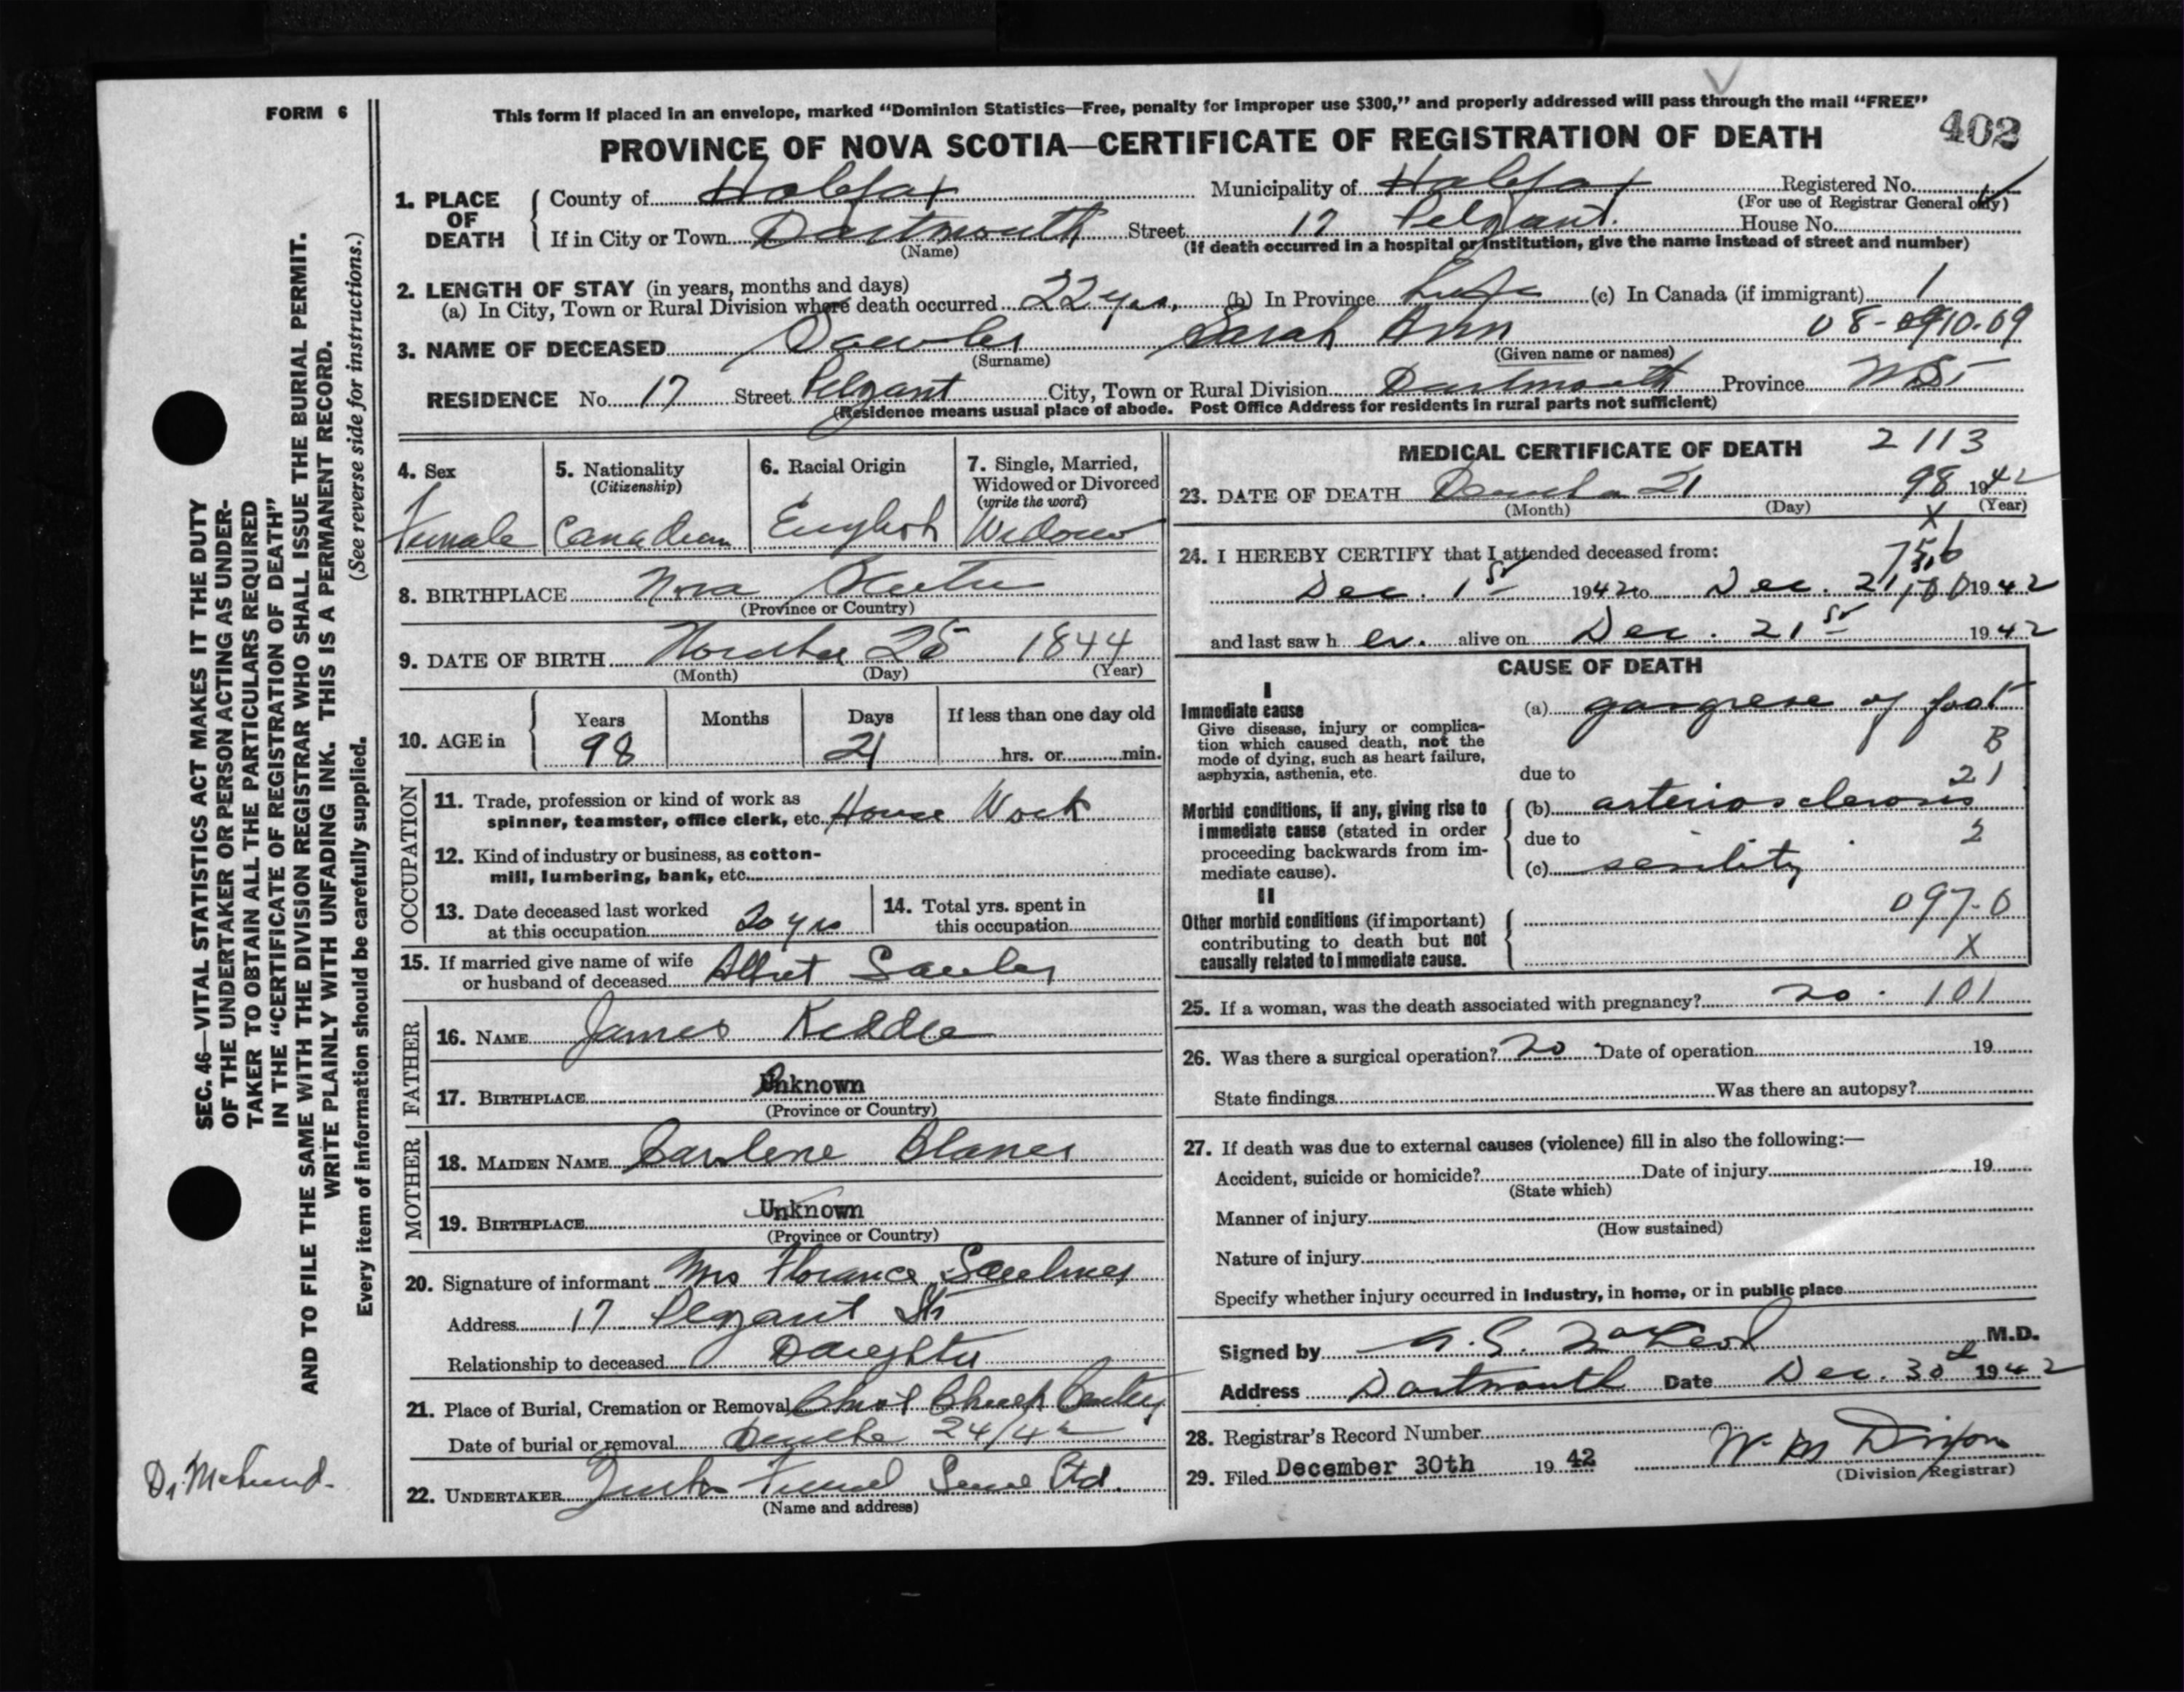 FORM 6
This form if placed in an envelope, marked “Dominion Statistics—Free, penalty for improper use $300,” and properly addressed will pass through the mail “FREE”
402
PROVINCE OF NOVA SCOTIA—CERTIFICATE OF REGISTRATION OF DEATH
1. PLACE OF DEATH
County of Halifax Municipality of Halifax Registered No.
(For use of Registrar General only)
If in City or Town Dartmouth Street 17 House No.
(Name) (If death occurred in a hospital or institution, give the name instead of street and number)
2. LENGTH OF STAY (in years, months and days)
(a) In City, Town or Rural Division where death occurred 22 yrs. (b) In Province Life (c) In Canada (if immigrant)
3. NAME OF DECEASED Sarah Ann
(Surname) (Given name or names)
RESIDENCE No. 17 Street City, Town or Rural Division Dartmouth Province N.S.
(Residence means usual place of abode. Post Office Address for residents in rural parts not sufficient)
4. Sex
Female
5. Nationality
(Citizenship)
Canadian
6. Racial Origin
English
7. Single, Married,
Widowed or Divorced
(write the word)
Widow
8. BIRTHPLACE Nova Scotia
(Province or Country)
9. DATE OF BIRTH November 1844
(Month) (Day) (Year)
10. AGE in
Years Months Days If less than one day old
98 21 hrs. or min.
OCCUPATION
11. Trade, profession or kind of work as
spinner, teamster, office clerk, etc. House Work
12. Kind of industry or business, as cotton-
mill, lumbering, bank, etc.
13. Date deceased last worked
at this occupation 20 yrs
14. Total yrs. spent in
this occupation
15. If married give name of wife
or husband of deceased
FATHER
16. NAME James
17. BIRTHPLACE Unknown
(Province or Country)
MOTHER
18. MAIDEN NAME
19. BIRTHPLACE Unknown
(Province or Country)
20. Signature of informant Mrs Florance
Address 17 St
Relationship to deceased Daughter
21. Place of Burial, Cremation or Removal Christ Church
Date of burial or removal 24/42
22. UNDERTAKER Ltd.
(Name and address)
MEDICAL CERTIFICATE OF DEATH 2113
23. DATE OF DEATH December 21 98 1942
(Month) (Day) (Year)
24. I HEREBY CERTIFY that I attended deceased from:
Dec. 1st 1942 to Dec. 21 1942
and last saw her. alive on Dec. 21st 1942
CAUSE OF DEATH
I
Immediate cause
Give disease, injury or complica-
tion which caused death, not the
mode of dying, such as heart failure,
asphyxia, asthenia, etc.
(a) gangrene of foot
B
21
due to
Morbid conditions, if any, giving rise to
immediate cause (stated in order
proceeding backwards from im-
mediate cause).
(b) arteriosclerosis
due to
(c) senility
II
Other morbid conditions (if important)
contributing to death but not
causally related to immediate cause.
097-0
X
25. If a woman, was the death associated with pregnancy? no. 101
26. Was there a surgical operation? no Date of operation 19
State findings Was there an autopsy?
27. If death was due to external causes (violence) fill in also the following:—
Accident, suicide or homicide? Date of injury 19
(State which)
Manner of injury
(How sustained)
Nature of injury
Specify whether injury occurred in industry, in home, or in public place
Signed by MacLeod M.D.
Address Dartmouth Date Dec. 30th 1942
28. Registrar's Record Number
29. Filed December 30th 1942
(Division Registrar)
SEC. 46—VITAL STATISTICS ACT MAKES IT THE DUTY
OF THE UNDERTAKER OR PERSON ACTING AS UNDER-
TAKER TO OBTAIN ALL THE PARTICULARS REQUIRED
IN THE “CERTIFICATE OF REGISTRATION OF DEATH”
AND TO FILE THE SAME WITH THE DIVISION REGISTRAR WHO SHALL ISSUE THE BURIAL PERMIT.
WRITE PLAINLY WITH UNFADING INK. THIS IS A PERMANENT RECORD.
(See reverse side for instructions.)
Every item of information should be carefully supplied.